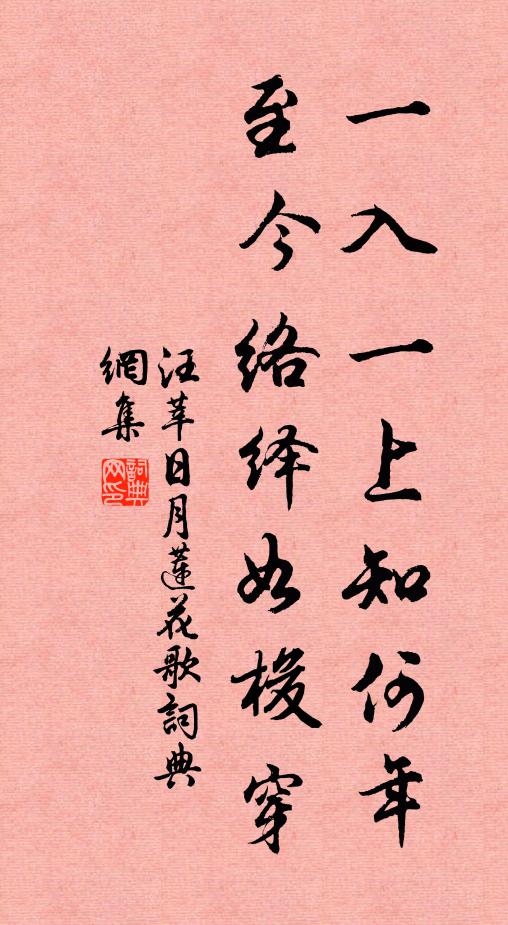 一入一上知何年
至今络绎如梭穿
汪莘日月蓮花歌詞典
網集
詞典网印